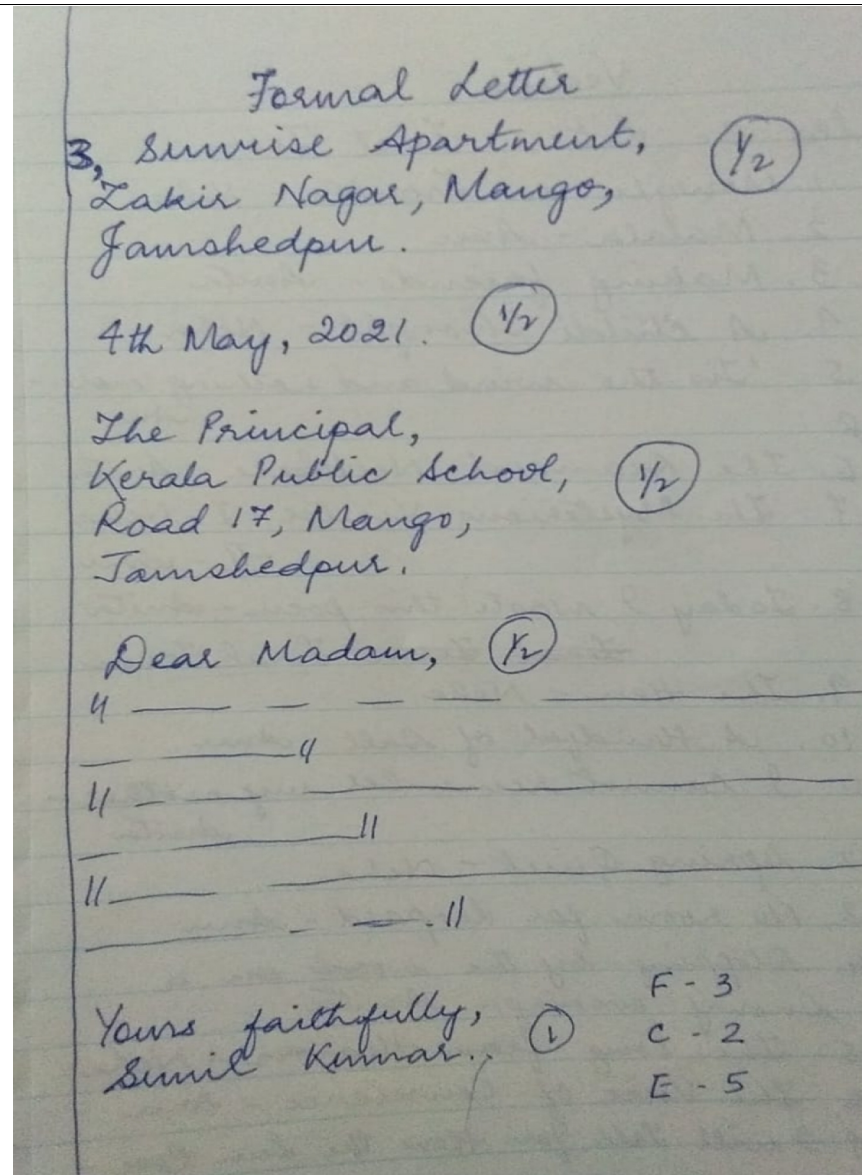 Formal Letter
3, Sunrise Apartment, 1/2
Zakir Nagar, Mango,
Jamshedpur.
4th May, 2021. 1/2
The Principal,
Kerala Public School, 1/2
Road 17, Mango,
Jamshedpur.
Dear Madam, 1/2
Yours faithfully, 1
Sunil Kumar.
F - 3
C - 2
E - 5